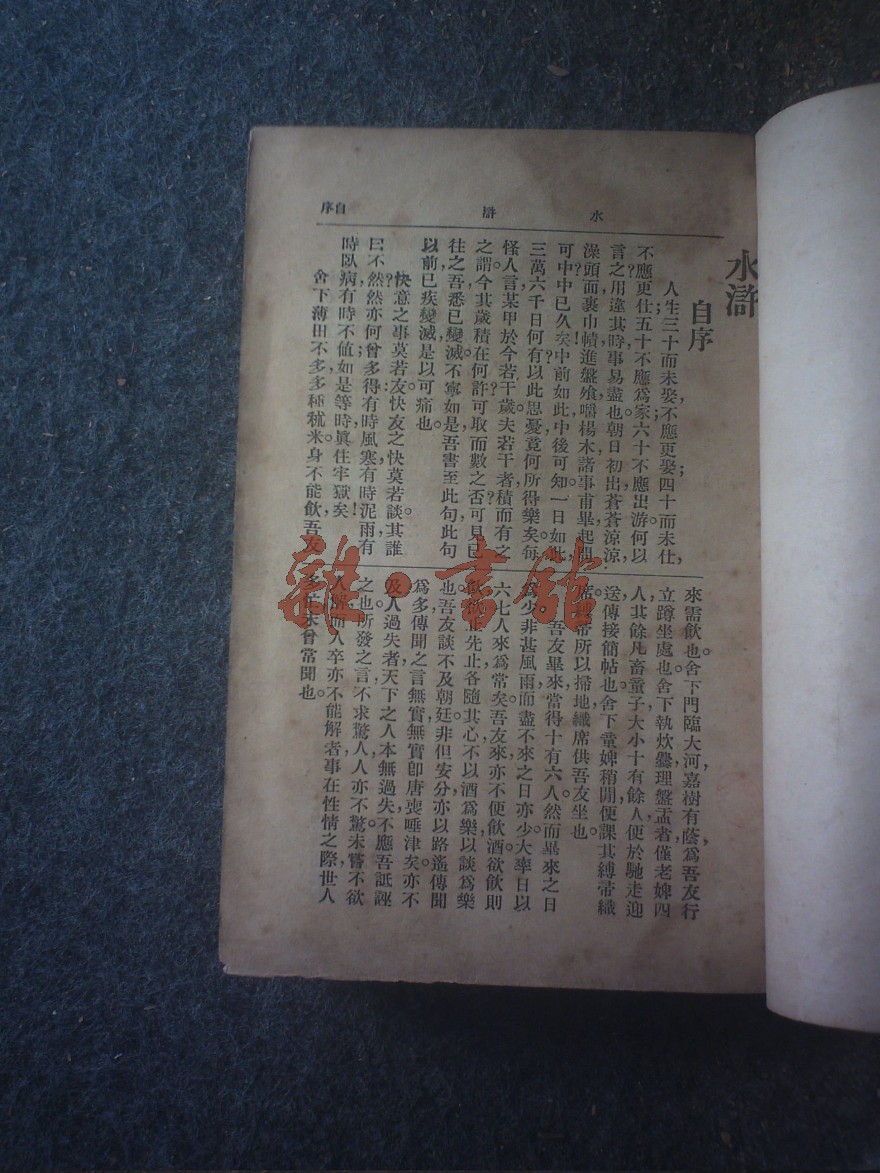 水滸
自序
水　滸　自序
人生三十而未娶,不應更娶;四十而未仕,
不應更仕;五十不應爲家;六十不應出游。何以
言之?用違其時,事易盡也。朝日初出,蒼蒼涼涼,
澡頭面,裹巾幘,進盤飧,嚼楊木。諸事甫畢,起問
可中?中已久矣!中前如此,中後可知。一日如此,
三萬六千日何有!以此思憂,竟何所得樂矣?每
怪人言某甲於今若干歲。夫若干者,積而有之
之謂。今其歲積在何許?可取而數之否?可見已
往之吾,悉已變滅。不寧如是,吾書至此句,此句
以前已疾變滅,是以可痛也。
快意之事莫若友,快友之快莫若談,其誰
曰不然?然亦何曾多得。有時風寒,有時泥雨,有
時臥病,有時不値,如是等時,眞住牢獄矣!
舍下薄田不多,多種秫米,身不能飲,吾友
來需飲也。舍下門臨大河,嘉樹有蔭,爲吾友行
立蹲坐處也。舍下執炊爨、理盤盂者,僅老婢四
人;其餘凡畜童子大小十有餘人,便於馳走迎
送、傳接簡帖也。舍下童婢稍閒,便課其縛帚織
席。縛帚所以掃地,織席供吾友坐也。
吾友畢來,當得十有六人。然而畢來之日
爲少,非甚風雨而盡不來之日亦少。大率日以
六七人來爲常矣。吾友來,亦不便飲酒,欲飲則
飲,欲止先止,各隨其心,不以酒爲樂,以談爲樂
也。吾友談不及朝廷,非但安分,亦以路遙,傳聞
爲多。傳聞之言無實,無實卽唐喪唾津矣。亦不
及人過失者,天下之人本無過失,不應吾詆誣
之也。所發之言,不求驚人,人亦不驚;未嘗不欲
人解,而人卒亦不能解者,事在性情之際,世人
多忙,未曾常聞也。
雜·書館